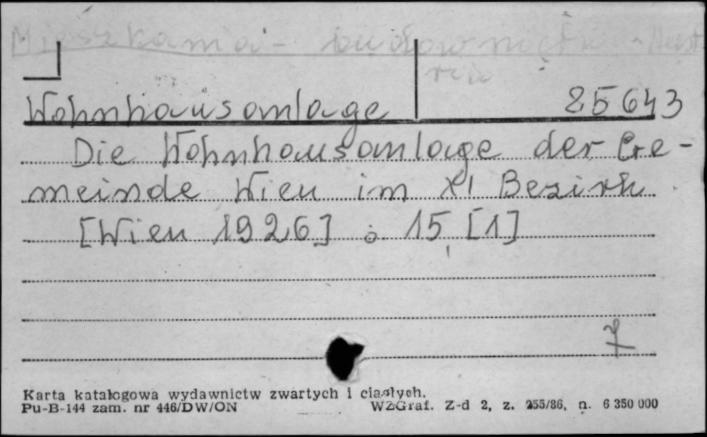 Mieszkania - budownictwo - Aust
ria
Wohnhausanlage 85643
Die Wohnhausanlage der Ge-
meinde Wien im XI Bezirk
[Wien 1926] 8° 15, [1]
Karta katalogowa wydawnictw zwartych i ciągłych.
Pu-B-144 zam. nr 446/DW/ON WZGraf. Z-d 2, z. 255/86, n. 6 350 000